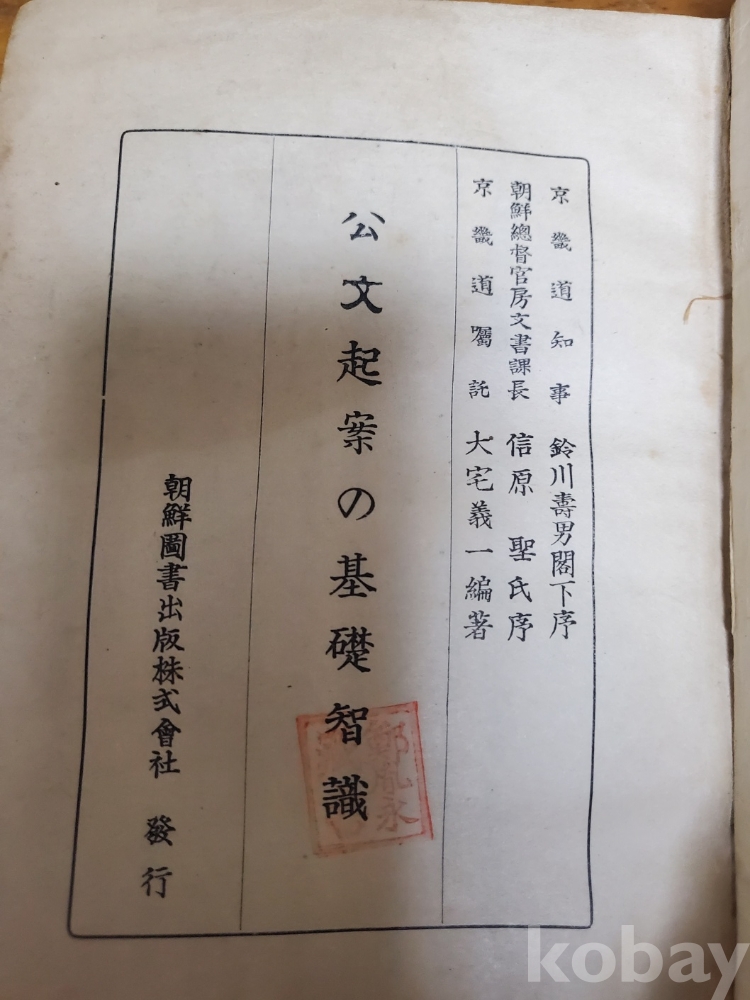 京畿道知事 鈴川壽男閣下序
朝鮮總督官房文書課長 信原 聖氏序
京畿道囑託 大宅義一編著
公文起案の基礎智識
朝鮮圖書出版株式會社 發行
kobay